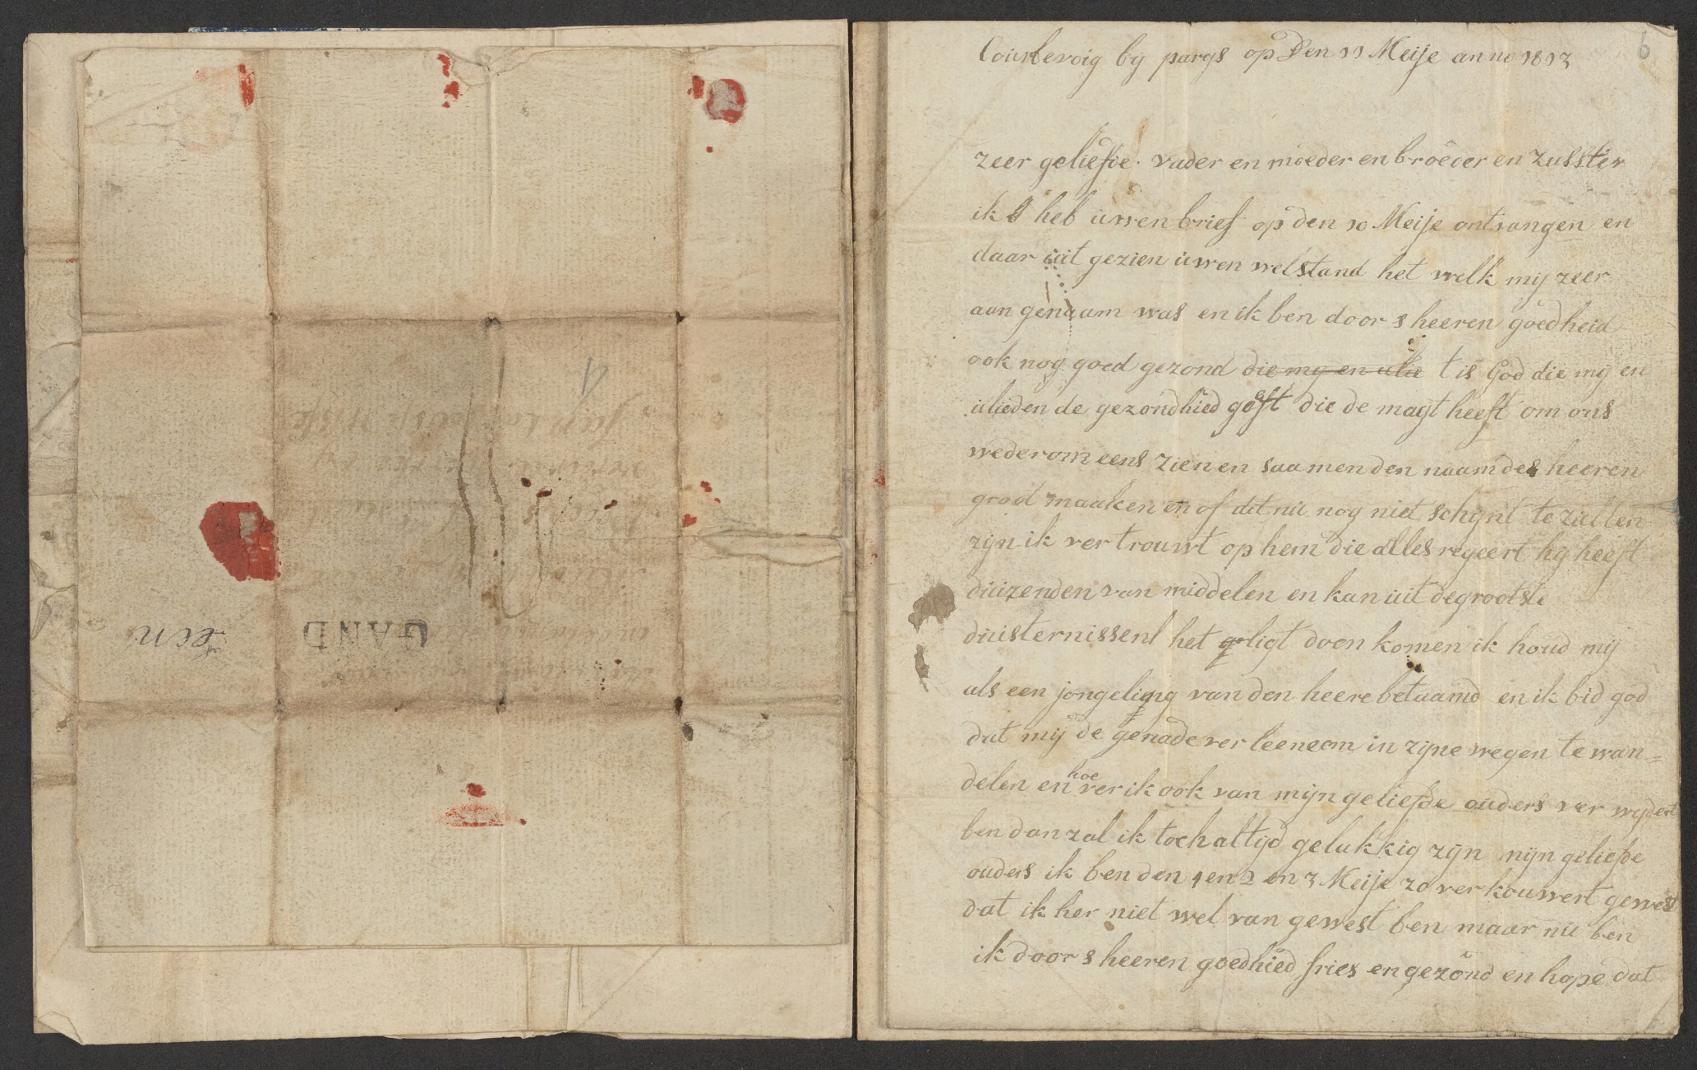 GAND
een
6
Courbevoig by parys op Den 11 Meije anno 1813
zeer geliefde vader en moeder en broeder en zusster
ik heb uwen brief op den 10 Meije ontvangen en
daar uit gezien uwen welstand het welk mij zeer
aan genaam was en ik ben door s heeren goedheid
ook nog goed gezond die my en ulie t is God die mij en
ulieden de gezondhied geeft die de magt heeft om ons
wederom eens zien en saamen den naam des heeren
groot maaken en of dit nu nog niet schynt te zullen
zijn ik vertrouwt op hem die alles regeert hy heeft
duizenden van middelen en kan uit de grootste
duisternissenl het ligt doen komen ik houd mij
als een jongeling van den heere betaamd en ik bid god
dat mij de genade verleene om in zijne wegen te wan=
delen en hoe ver ik ook van mijn geliefde ouders ver wydert
ben dan zal ik toch altijd gelukkig zijn mijn geliefde
ouders ik ben den 1 en 2 en 3 Meije zo verkouwert gewest
dat ik her niet wel van gewest ben maar nu ben
ik door s heeren goedhied fries en gezond en hope dat